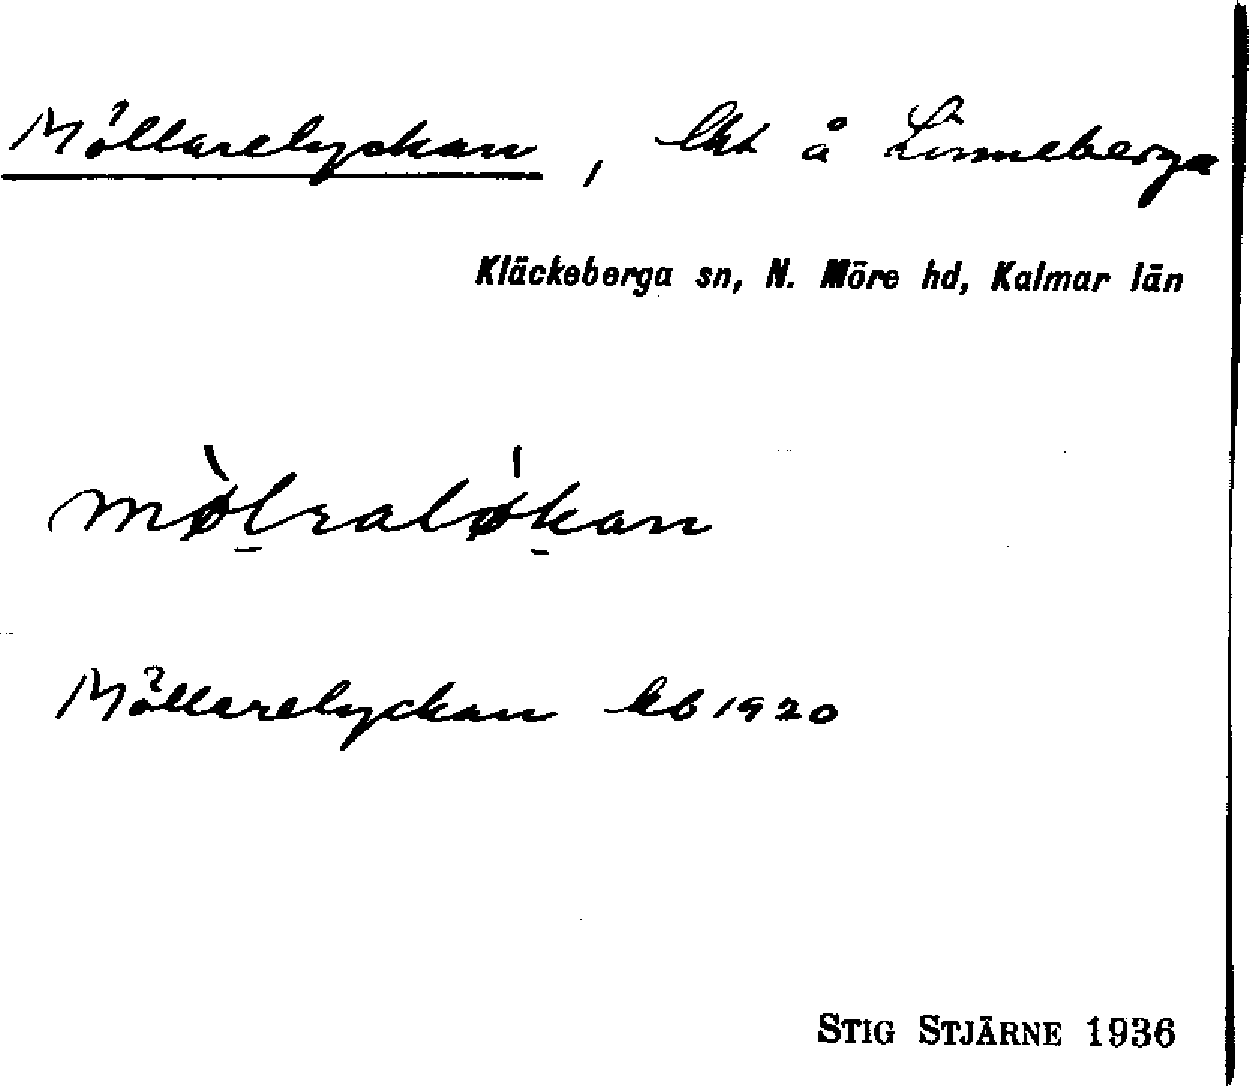 Möllarelyckan, lht å Linneberga
Kläckeberga sn, N. Möre hd, Kalmar län
mø̀lralø̍kan
Möllarelyckan kb 1920
STIG STJÄRNE 1936